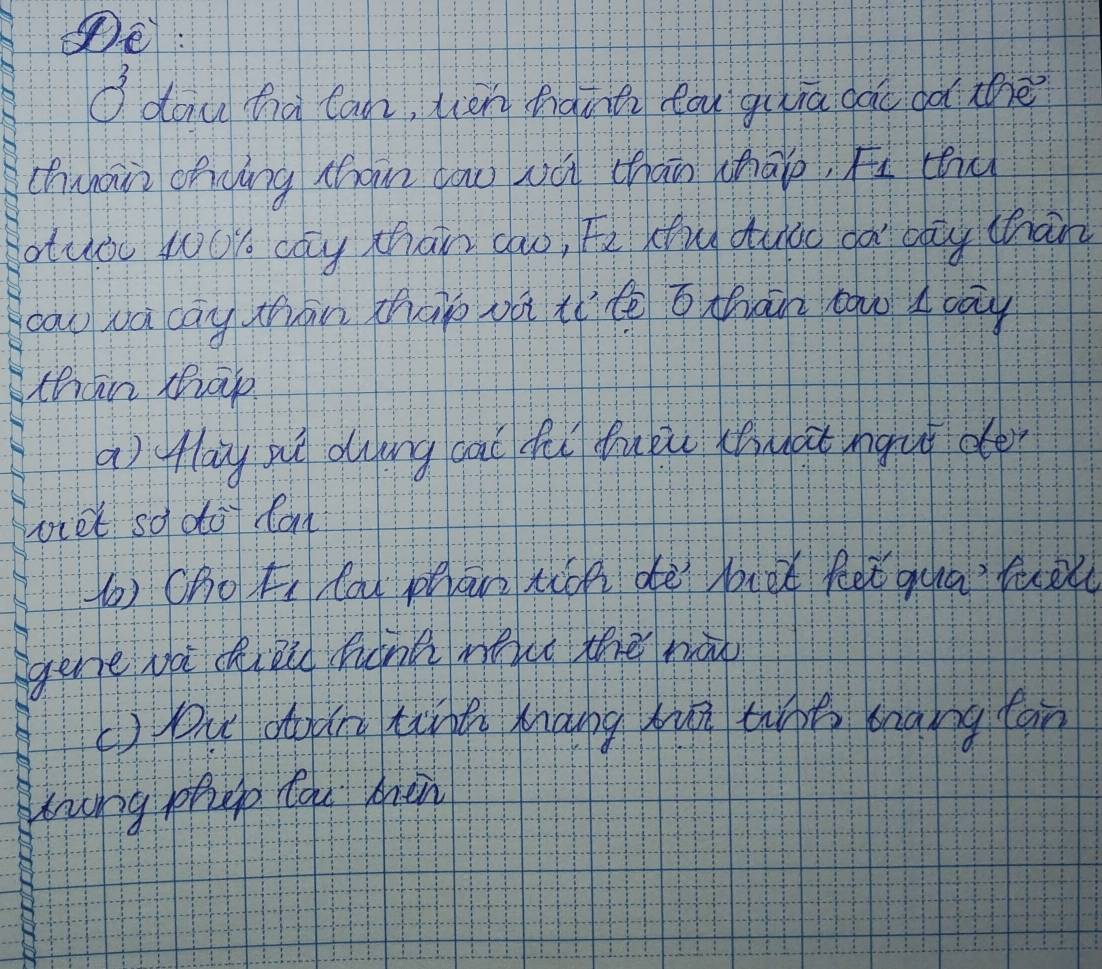 Đề:
Ở đậu hà lan, tiến hành lai giữa các cá thể
thuần chủng thân cao với thân thấp, F1 thu
được 100% cây thân cao, F2 thu được cả cây thân
cao và cây thân thấp với tỉ lệ 3 thân cao 1 cây
thân thấp.
a) Hãy sử dụng các kí hiệu thuật ngữ để
viết sơ đồ lai
b) Cho F1 lai phân tích để biết kết quả kiểu
gene và kiểu hình như thế nào
c) Dự đoán tính trạng trội tính trạng lặn
trong phép lai trên